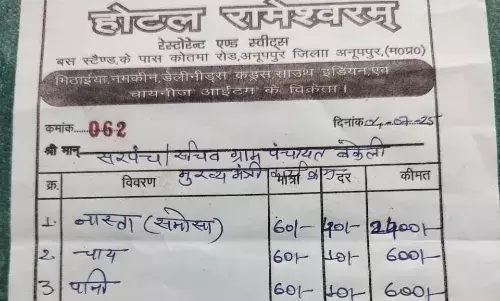 होटल रामेश्वरम्
रेस्टोरेन्ट एण्ड स्वीट्स
बस स्टैण्ड,के पास कोतमा रोड,अनूपपुर,जिला अनूपपुर,(म०प्र०)
मिठाईयां,नमकीन,डेलीनीड्स कड्स,साउथ इंडियन,एवं
चायनीज आईटम के विक्रेता।
क्रमांक.....062 दिनांक 04-07-25
श्री मान् सरपंच/सचिव ग्राम पंचायत बकेली
मुख्य मंत्री
क्र. विवरण मात्रा दर कीमत
1. नास्ता (समोसा) 60/- 40/- 2400/-
2. चाय 60/- 10/- 600/-
3 पानी 60/- 10/- 600/-